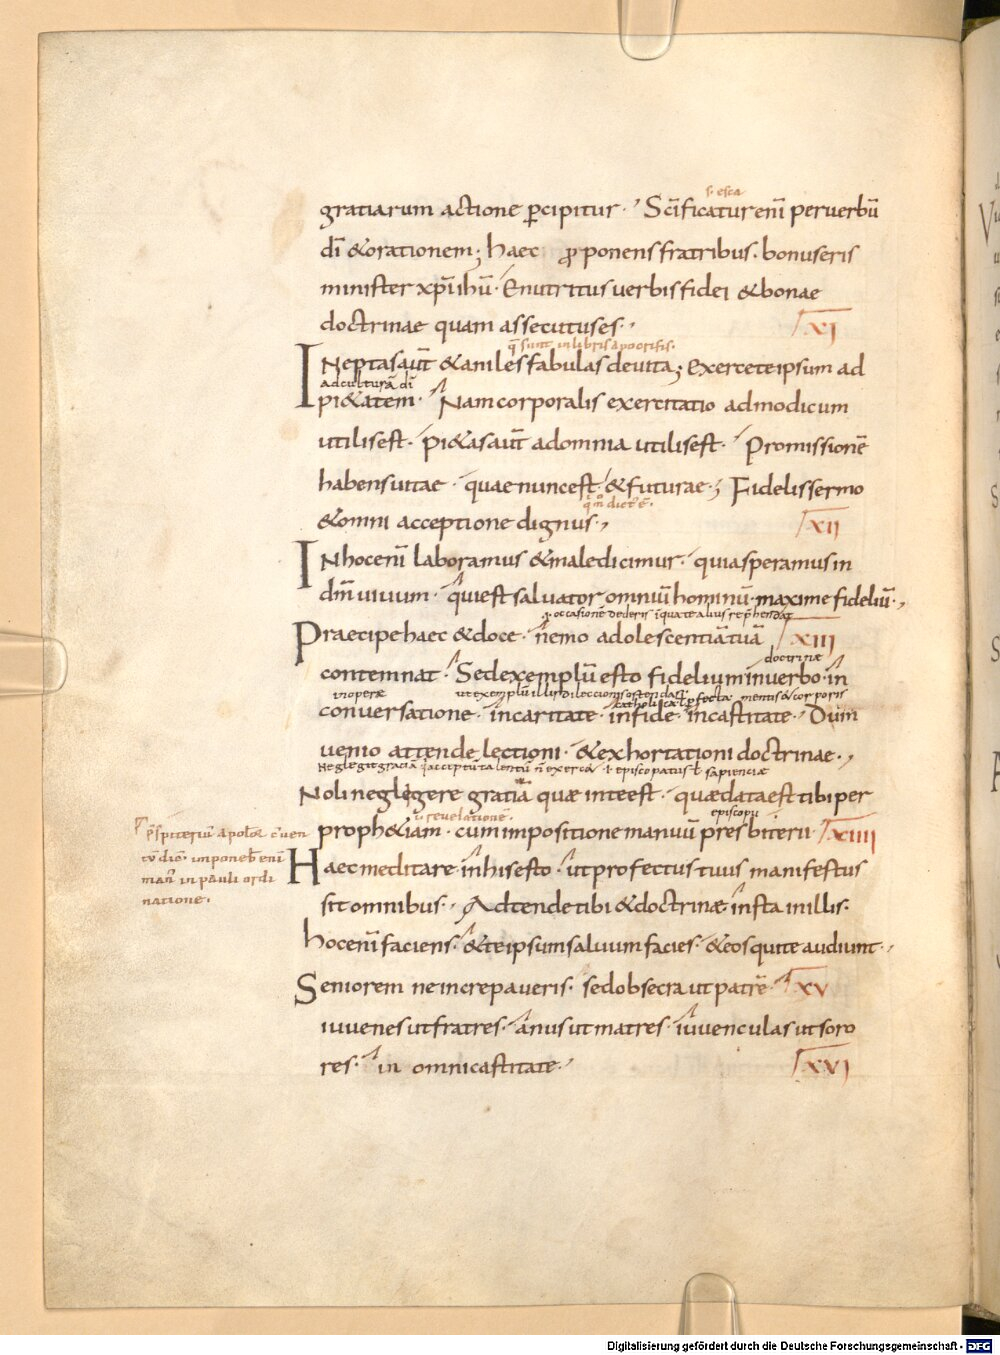 s. esca
gratiarum actione p̄cipitur· Sc̄ificatur enī per verbū
dī & orationem; haec proponens fratribus· bonus eris
minister xp̄i ih̄ū· Enutritus verbis fidei & bonae
doctrinae quam assecutus es·, XI
q̄ sunt in libris apocrifis·
Ineptas aūt & aniles fabulas deuita; Exerce te ipsum ad
ad culturā dī
pi&atem· Nam corporalis exercitatio ad modicum
utilis est· pi&as aūt ad omnia utilis est· Promissionē
habens uitae· quae nunc est· & futurae·; Fidelis sermo
dict' ē·
& omni acceptione dignus·, XII
In hoc enī laboramus & maledicimur· quia speramus in
dm̄ uiuum· qui est saluator omniū hominū· maxime fideliū·,
occasionē dederis
Praecipe haec & doce· nemo adolescentiā tuā XIII
doctrinae
contemnat· Sed exemplū esto fidelium in uerbo· in
in opere ut exemplū illis dileccionis ostendas catholica perfecta mentis & corporis
conuersatione· in caritate· in fide· in castitate· Dum
uenio attende lectioni· & exhortationi doctrinae·,
Neglegit gratiā acceptū talentū n̄ exercet i· episcopatus t̄ sapienciae
Noli neglegere gratiā quae in te est· quae data est tibi per
reuelationē· episcopu
proph&iam· cum impositione manuū presbiterii· XIIII
p̄spiteriū
imponeb̄ enī
Haec meditare· in his esto· ut profectus tuus manifestus
man' in pauli ordi
natione·
sit omnibus·, Adtende tibi & doctrinae· insta in illis·
hoc enī faciens· & te ipsum saluum facies· & eos qui te audiunt·,
Seniorem ne increpaueris· sed obsecra ut patrē· XV
iuuenes ut fratres· anus ut matres· iuuenculas ut soro
res· in omni castitate· XVI
Digitalisierung gefördert durch die Deutsche Forschungsgemeinschaft - DFG